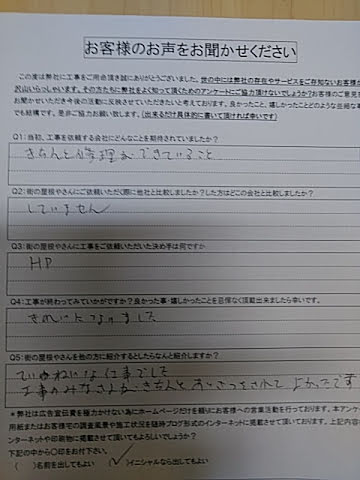 お客様のお声をお聞かせください
この度は弊社に工事をご用命頂き誠にありがとうございました。世の中には弊社の存在やサービスをご存知ないお客様が
沢山いらっしゃいます。その方たちにも弊社をよく知って頂くためのアンケートにご協力頂けないでしょうか?お客様のご意見を
お聞かせいただき今後の活動に反映させていただきたいと考えております。良かったこと、嬉しかったことどのような些細な事
でも結構です。是非ご協力お願い致します。(出来るだけ具体的に書いて頂ければ幸いです)
Q1:当初、工事を依頼する会社にどんなことを期待されていましたか?
きちんと修理ができていること
Q2:街の屋根やさんにご依頼いただく際に他社と比較しましたか?した方はどこの会社と比較しましたか?
していません
Q3:街の屋根やさんに工事をご依頼いただいた決め手は何ですか
HP
Q4:工事が終わってみていかがですか?良かった事・嬉しかったことを忌憚なく頂戴出来ましたら幸いです。
きれいになりました
Q5:街の屋根やさんを他の方に紹介するとしたらなんと紹介しますか?
ていねいな仕事でした
工事のみなさんが、きちんとあいさつをされてよかったです
*弊社は広告宣伝費を極力かけない為にホームページだけを頼りにお客様への営業活動を行っております。本アンケ
用紙またはお客様宅の調査風景や施工状況を随時ブログ形式のインターネットに掲載させて頂いております。上記内容
ンターネットや印刷物に掲載させて頂いてもよろしいでしょうか?
下記の中から○印をお付下さい。
( )名前を出してもよい (✓)イニシャルなら出してもよい